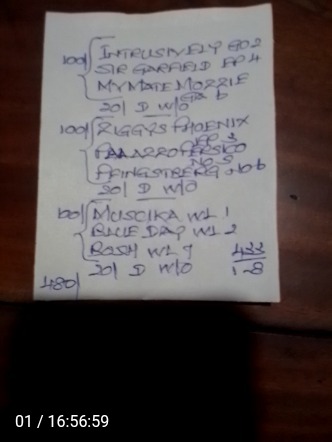 100/ INTRUSIVELY GO 2
SIR GARFIELD FP 4
MYMATEMOZZIE
GP 6
20/ D W/O
100/ ZIGGYS PHOENIX
PAAAZZOPERSICO
NO 5
PFINGSTBERG NO 6
20/ D W/O
100/ MUSCIKA WL 1
BLUE DAY WL 2
ROSH WL 7
20/ D W/O
432
128
480/
01 / 16:56:59